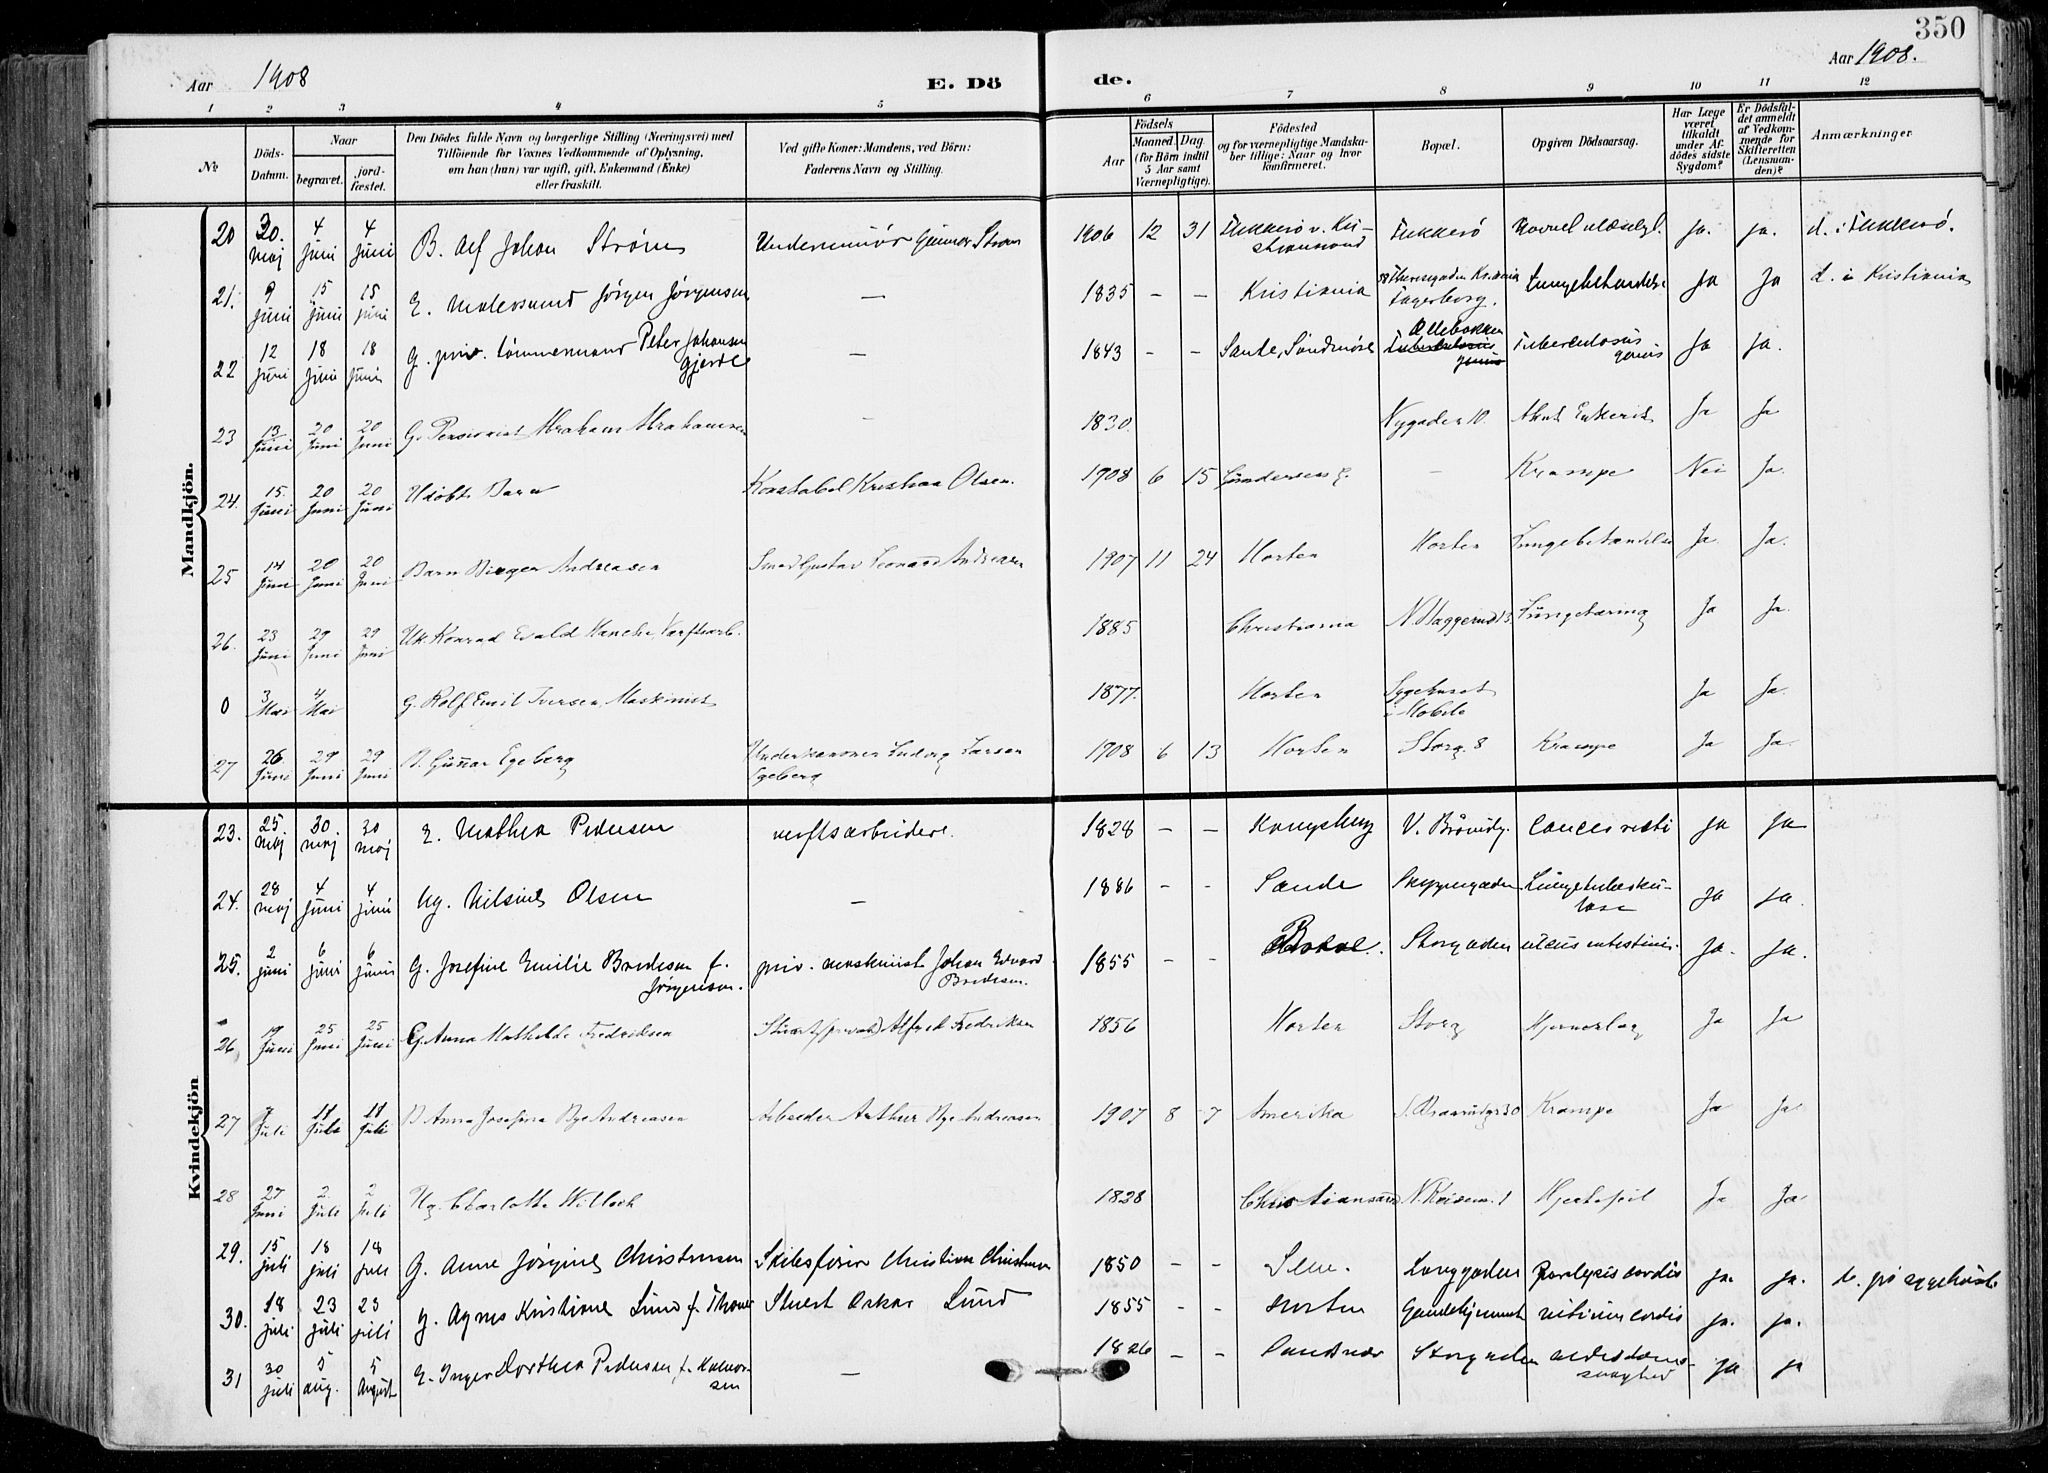 350
Aar 1908 E. Dö de. Aar 1908.
1 2 3 4 5 6 7 8 9 10 11 12
No. Döds-Datum. Naar begravet. jord-fæstet. Den Dödes fulde Navn og borgerlige Stilling (Næringsvei) med Tilföiende for Voxnes Vedkommende af Oplysning, om han (hun) var ugift, gift, Enkemand (Enke) eller fraskilt. Ved gifte Koner: Mandens, ved Börn: Faderens Navn og Stilling. Födsels Aar Maaned. Dag (for Börn indtil 5 Aar samt Værnepligtige). Födested og for værnepligtige Mandskaber tillige: Naar og hvor konfirmeret. Bopæl. Opgiven Dödsaarsag. Har Læge været tilkaldt under Afdödes sidste Sygdom? Er Dödsfaldet anmeldt af Vedkommende for Skifteretten (Lensmanden)? Anmærkninger
Mandkjön.
20 30. maj 4 juni 4 juni B. Alf Johan Strøm Underminør Gunnar Strøm 1906 12 31 Tukkerø v. Kristiansund Tukkerø ja. ja. d. i Tukkerø.
21. 9 juni 15 juni 15 juni E. Malersvend Jørgen Jørgensen — 1835 - - Kristiania Fagerborg. Lungebetændelse Ja Ja d. i Kristiania
22 12 juni 18 juni 18 juni G. priv. tømmermand Peter Johansen Gjerde — 1843 - - Sande, Søndmøre Tuberculosis genus Ja Ja.
23 13 Juni 20 Juni 20 Juni G. Pensionist Abraham Abrahamsen — 1830. Nygaden 10. Akut Enterit Ja Ja
24. 15. Juni 20 Juni 20 Juni Udøbt Barn Konstabel Kristian Olsen. 1908 6 15 - Krampe Nei Ja.
25 14 Juni 20 Juni 20 Juni Barn Birger Andreasen Smed Gustav Leonard Andreasen 1907 11 24 Horten Horten Lungebetændelse Ja Ja.
26. 23 Juni 29 Juni 29 Juni Uk. Konrad Evald Hanche Værftsarb. 1885 Christiania Lungetæring Ja Ja.
0 3 Mai 4 Mai G. Rolf Emil Iversen, Maskinist 1877. Horten Sygehuset i Mobile Ja Ja.
27 26 Juni 29 Juni 29 Juni B. Gunnar Egeberg Underkanoner Ludvig Larsen Egeberg 1908 6 13 Horten Storg. 8 Krampe Ja Ja.
Kvindekjön
23. 25 maj 30 maj. 30 maj E. Mathea Pedersen verftsarbeidere. 1828 - - Kongsberg V. Bråvidg. cancer recti ja ja
24. 28 maj 4 juni 4 juni Ug. Nilsine Olsen — 1886 - - Sande Skippergaden Lungetuberkulose Ja ja.
25. 2 juni 6 juni 6 juni G. Josefine Emilie Bredesen f. Jörgensen. priv. maskinist Johan Edvard Bredesen. 1855 - - Borre. Storgaden ulcus intestinis. Ja. Ja.
26 19 Juni 25 Juni 25 Juni G. Anna Mathilde Fredriksen Alfred Fredriksen 1856 Horten Storg Hjerneslag Ja Ja
27 7 Juli 11 Juli 11 Juli B Anna Josefina Bye Andreasen Arbeider Arthur Bye Andreasen 1907 8 7 Amerika Krampe Ja Ja.
28 27 Juni 2. Juli 2 Juli Ug. Charlotte Willoch 1828 Christiansand N. Keiserv. 1 Hjertefeil Ja Ja
29. 15 juli 18 juli 18 juli G. Anne Jörgine Christensen Skibsfører Christian Christensen 1850 - - Slem. Langgaden Paralysis cordis ja. ja. d. på sygehuset
30. 18 juli 23 juli 23 juli G. Agnes Kristiane Lund f. Stuert Oskar Lund 1855 - - Horten Gamlehjemmet vitium cordis ja. ja.
31 30 juli 5 aug. 5 August E. Inger Dorthea Pedersen f. Halvorsen — 1826 - - Storgaden alderdomssvaghed ja ja